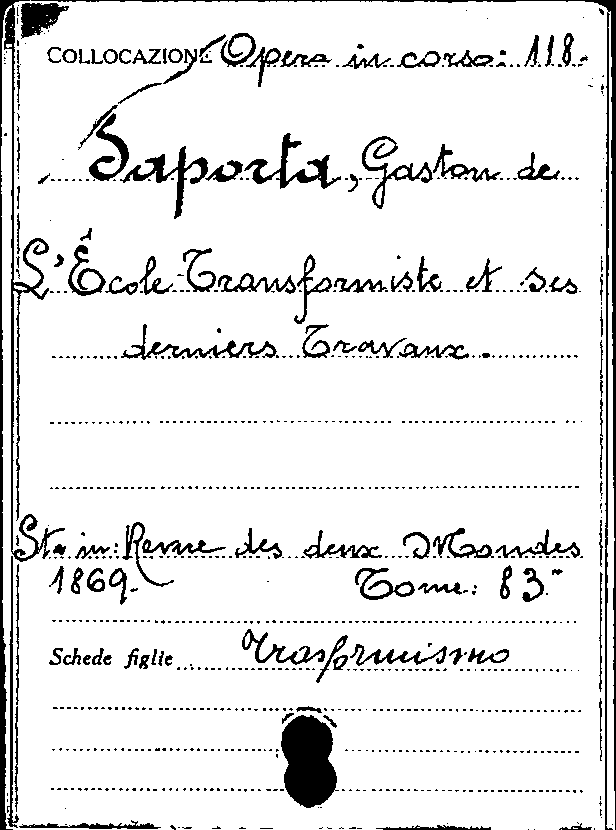 COLLOCAZIONE Opera in corso: 118.
Saporta, Gaston de
L'École Transformiste et ses
derniers Travaux.
Sta in: Revue des deux Mondes
1869. Tome: 83º
Schede figlie Trasformismo